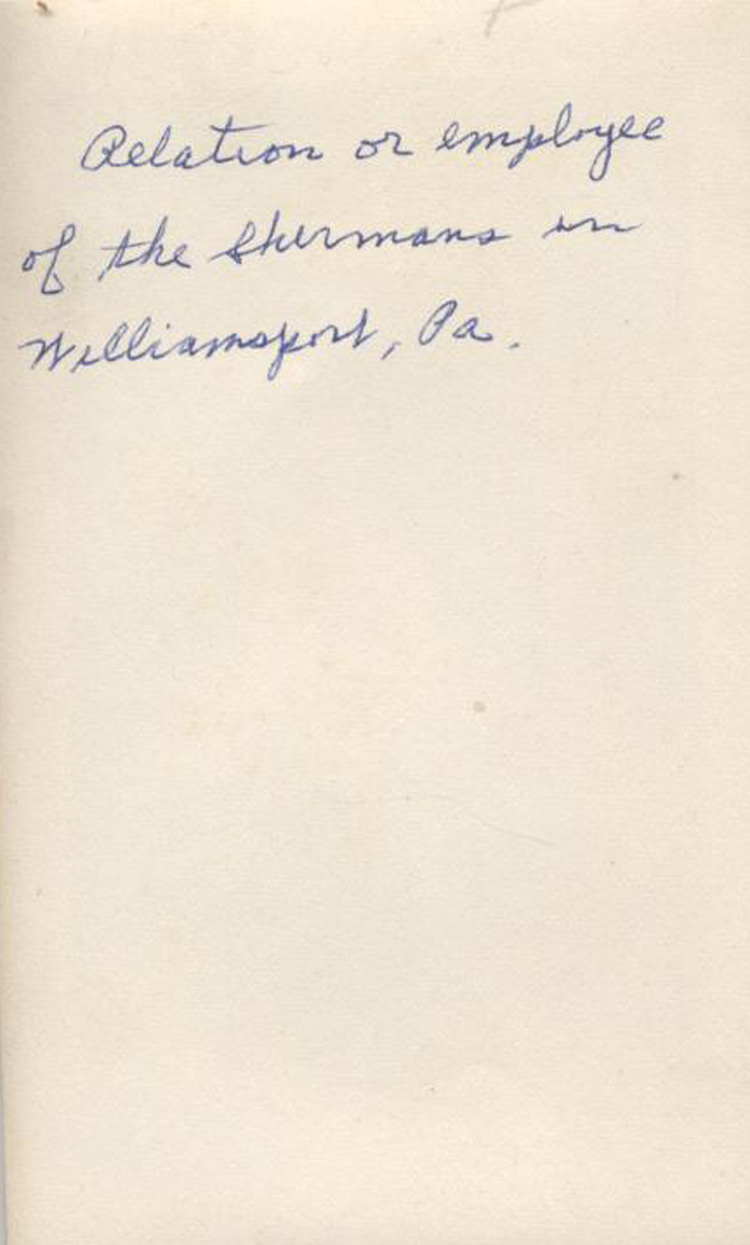 Relation or employee
of the Shermans in
Williamsport, Pa.